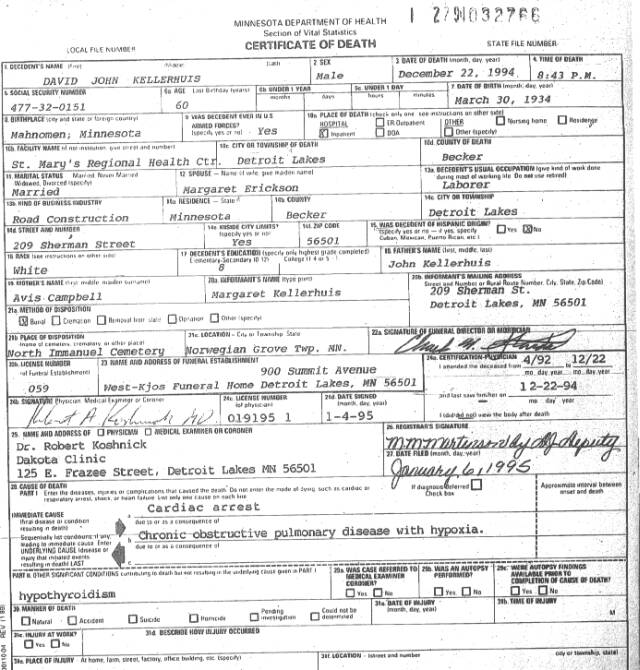 1 27N032766
MINNESOTA DEPARTMENT OF HEALTH
Section of Vital Statistics
LOCAL FILE NUMBER CERTIFICATE OF DEATH STATE FILE NUMBER
1. DECEDENT'S NAME (First) Middle Last 2 SEX 3. DATE OF DEATH (month, day, year) 4. TIME OF DEATH
DAVID JOHN KELLERHUIS Male December 22, 1994 8:43 P.M.
5. SOCIAL SECURITY NUMBER 6a AGE Last Birthday (years) 6b UNDER 1 YEAR 6c UNDER 1 DAY 7 DATE OF BIRTH (Month, day, year)
months days hours minutes
477-32-0151 60 March 30, 1934
8. BIRTHPLACE (city and state or foreign country) 9 WAS DECEDENT EVER IN U S ARMED FORCES? (specify yes or no) 10a PLACE OF DEATH (check only one - see instructions on other side)
HOSPITAL ER Outpatient OTHER Nursing home Residence
Mahnomen, Minnesota Yes X Inpatient DOA Other (specify)
10b. FACILITY NAME (if not institution, give street and number) 10c CITY OR TOWNSHIP OF DEATH 10d COUNTY OF DEATH
St. Mary's Regional Health Ctr. Detroit Lakes Becker
11. MARITAL STATUS Married, Never Married Widowed, Divorced (specify) 12 SPOUSE - Name of wife, give maiden name 13a. DECEDENT'S USUAL OCCUPATION (give kind of work done during most of working life. Do not use retired)
Married Margaret Erickson Laborer
13b. KIND OF BUSINESS INDUSTRY 14a RESIDENCE - State 14b COUNTY 14c CITY OR TOWNSHIP
Road Construction Minnesota Becker Detroit Lakes
14d STREET AND NUMBER 14e INSIDE CITY LIMITS? (specify yes or no) 14f ZIP CODE 15. WAS DECEDENT OF HISPANIC ORIGIN? (specify yes or no - if yes, specify Cuban, Mexican, Puerto Rican, etc.) Yes X No
209 Sherman Street Yes 56501
16 RACE (see instructions on other side) 17 DECEDENT'S EDUCATION (specify only highest grade completed) 18. FATHER'S NAME (first, middle, last)
Elementary-Secondary (0 12) College (1 4 or 5 )
White 8 John Kellerhuis
19. MOTHER'S NAME (first, middle, maiden surname) 20a. INFORMANT'S NAME (type print) 20b INFORMANT'S MAILING ADDRESS
Street and Number or Rural Route Number, City, State, Zip Code)
Avis Campbell Margaret Kellerhuis 209 Sherman St.
Detroit Lakes, MN 56501
21a. METHOD OF DISPOSITION
X Burial Cremation Removal from state Donation Other (specify)
21b PLACE OF DISPOSITION 21c LOCATION - City or Township, State 22a SIGNATURE OF FUNERAL DIRECTOR OR MORTICIAN
(Name of cemetery, crematory, or other place)
North Immanuel Cemetery Norwegian Grove Twp. MN.
22b. LICENSE NUMBER of Funeral Establishment 23. NAME AND ADDRESS OF FUNERAL ESTABLISHMENT 24a. CERTIFICATION-PHYSICIAN
900 Summit Avenue I attended the deceased from 4/92 12/22
059 West-Kjos Funeral Home Detroit Lakes, MN 56501 mo day year mo day year
24b SIGNATURE (Physician, Medical Examiner or Coroner) 24c LICENSE NUMBER of physician 24d DATE SIGNED (month, day, year) and last saw him/her on 12-22-94
Robert A Koshnick MD 019195 1 1-4-95 mo day year
I (did) (did not) view the body after death
25. NAME AND ADDRESS OF PHYSICIAN MEDICAL EXAMINER OR CORONER 26 REGISTRAR'S SIGNATURE
Dr. Robert Koshnick
Dakota Clinic 27. DATE FILED (month, day, year)
125 E. Frazee Street, Detroit Lakes MN 56501 January 6, 1995
28 CAUSE OF DEATH
PART I Enter the diseases, injuries or complications that caused the death. Do not enter the mode of dying, such as cardiac or respiratory arrest, shock, or heart failure. List only one cause on each line. If diagnosis deferred Check box Approximate interval between onset and death
IMMEDIATE CAUSE Cardiac arrest
(final disease or condition resulting in death) a due to or as a consequence of
Sequentially list conditions if any, leading to immediate cause. Enter UNDERLYING CAUSE (disease or injury that initiated events resulting in death) LAST b Chronic obstructive pulmonary disease with hypoxia.
due to or as a consequence of
c
PART II. OTHER SIGNIFICANT CONDITIONS contributing to death but not resulting in the underlying cause given in PART I 29a WAS CASE REFERRED TO MEDICAL EXAMINER CORONER? 29b WAS AN AUTOPSY PERFORMED? 29c WERE AUTOPSY FINDINGS AVAILABLE PRIOR TO COMPLETION OF CAUSE OF DEATH?
hypothyroidism Yes No Yes No Yes No
30. MANNER OF DEATH 31a DATE OF INJURY (month, day, year) 31b TIME OF INJURY
Natural Accident Suicide Homicide Pending investigation Could not be determined M
31c INJURY AT WORK? 31d DESCRIBE HOW INJURY OCCURRED
Yes No
31e. PLACE OF INJURY - At home, farm, street, factory, office building, etc. (specify) 31f LOCATION - (street and number) city or township, state)